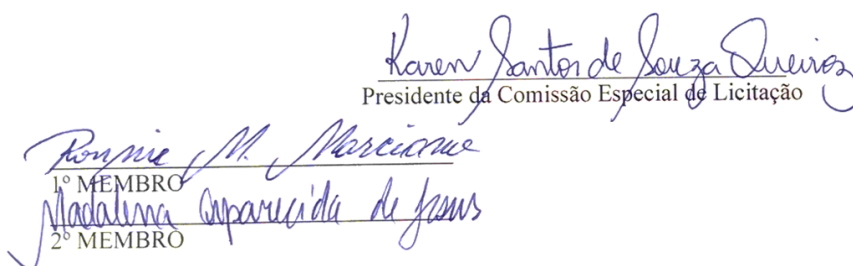 Karen Santos de Souza Queiroz
Presidente da Comissão Especial de Licitação
Ronnie M. Marcione
1º MEMBRO
Madalena Aparecida de Jesus
2º MEMBRO